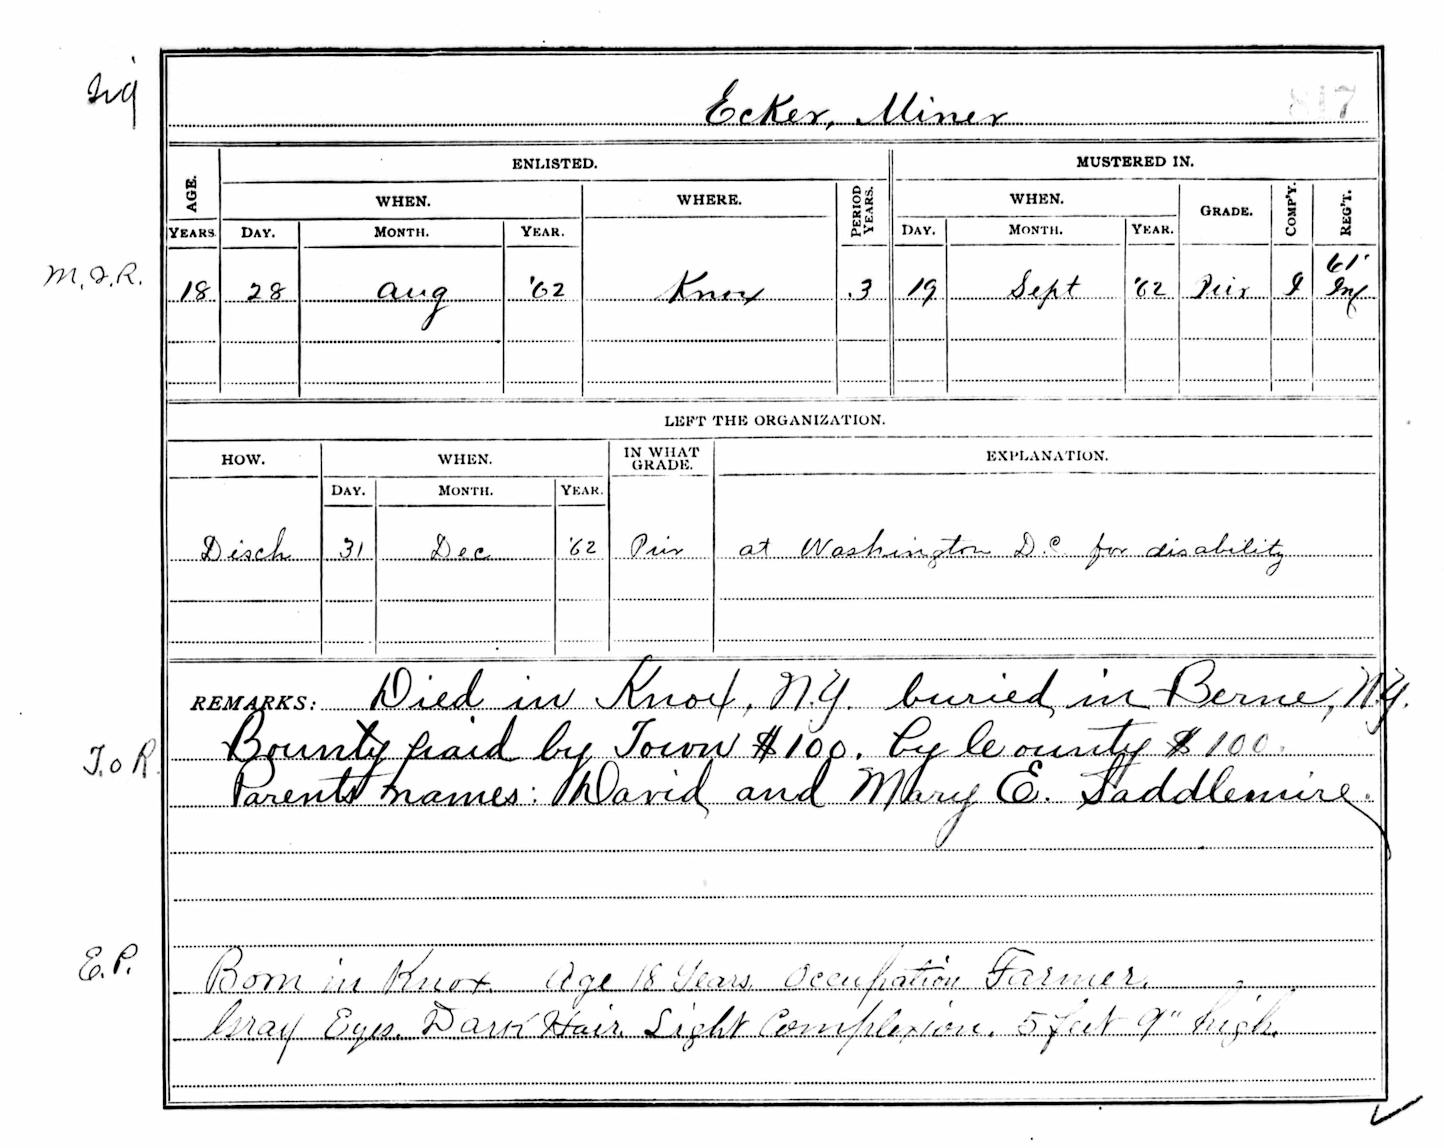 Ecker, Miner 847
ENLISTED. MUSTERED IN.
AGE. WHEN. WHERE. PERIOD YEARS. WHEN. GRADE. COMP'Y. REG'T.
YEARS. DAY. MONTH. YEAR. DAY. MONTH. YEAR.
M.I.R. 18 28 Aug '62 Knox 3 19 Sept '62 Priv I 61' Inf
LEFT THE ORGANIZATION.
HOW. WHEN. IN WHAT GRADE. EXPLANATION.
DAY. MONTH. YEAR.
Disch 31 Dec '62 Priv at Washington D.C. for disability
REMARKS: Died in Knox, N.Y. buried in Berne, N.Y.
T.o R. Bounty paid by Town $100. by County $100.
Parents names: David and Mary E. Saddlemire.
E.P. Born in Knox. Age 18 Years. Occupation Farmer.
Gray Eyes. Dark Hair. Light Complexion. 5 feet 9" high.